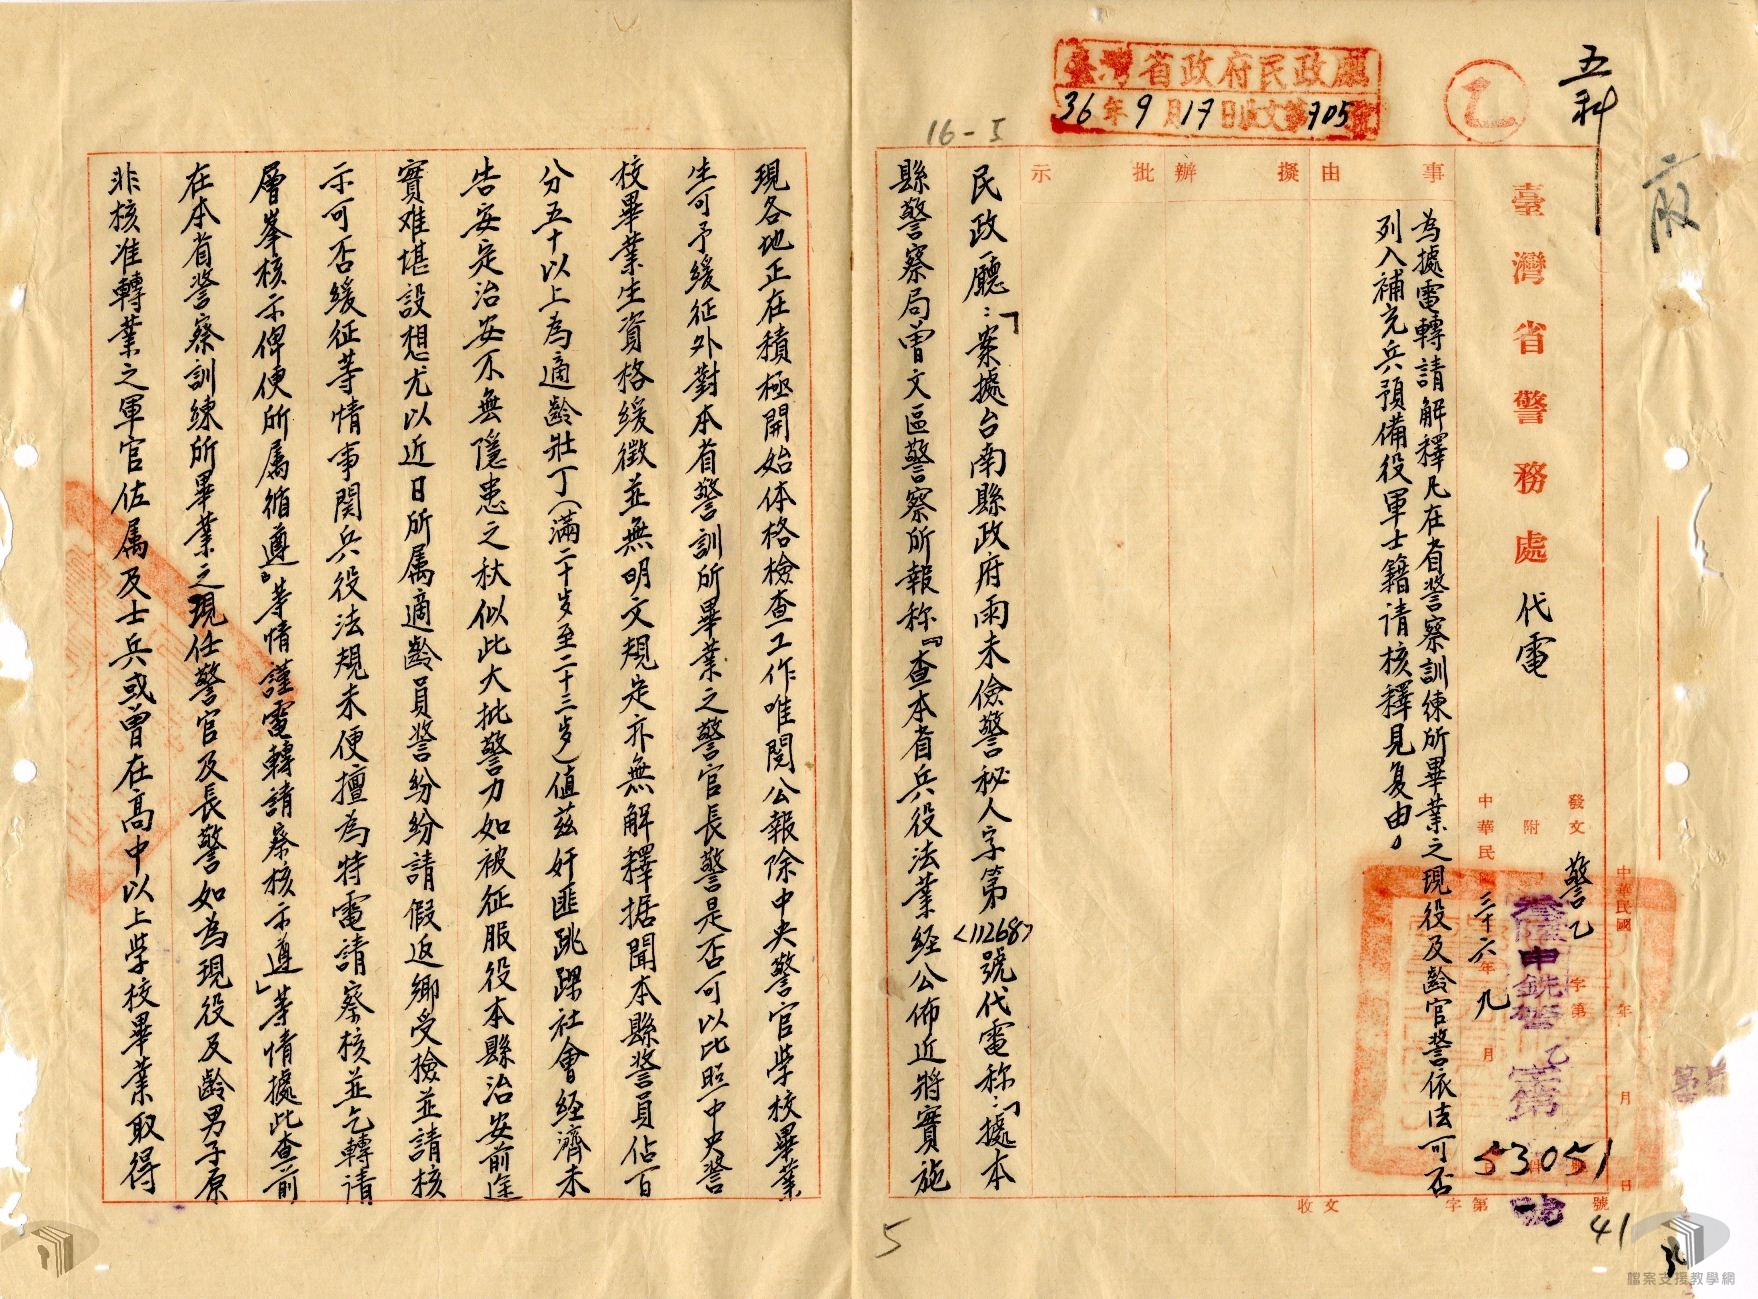 五科
乙
臺灣省政府民政廳
36年9月17日收文第705號
16-1
府
臺灣省警務處代電
發文 警乙 字第 53051 號
附
中華民國三十六年九月
中華民國 年 月 日
申銑警乙
收文 字第 號
41
事由
擬辦
批示
為據電轉請解釋凡在省警察訓練所畢業之現役及齡官警依法可否
列入補充兵預備役軍士籍请核釋見复由。
民政廳：「案據台南縣政府雨未儉警秘人字第<11268>號代電称：「據本
縣警察局曾文區警察所報称『查本省兵役法業经公佈近將實施
5
現各地正在積極開始体格檢查工作唯閱公報除中央警官學校畢業
生可予緩征外對本省警訓所畢業之警官長警是否可以比照中央警
校畢業生資格緩徵並無明文規定亦無解釋据聞本縣警員佔百
分五十以上為適齡壯丁（滿二十岁至二十三岁）值茲奸匪跳踝社會经濟未
告安定治安不無隱患之秋似此大批警力如被征服役本縣治安前途
實难堪設想尤以近日所属適齡員警紛紛請假返鄉受檢並請核
示可否緩征等情事関兵役法規未便擅為特電請察核並乞轉请
層峯核示俾便所属循遵』等情謹電轉請察核示遵」等情據此查前
在本省警察訓練所畢業之現任警官及長警如為現役及齡男子原
非核准轉業之軍官佐属及士兵或曾在高中以上學校畢業取得
檔案支援教學網